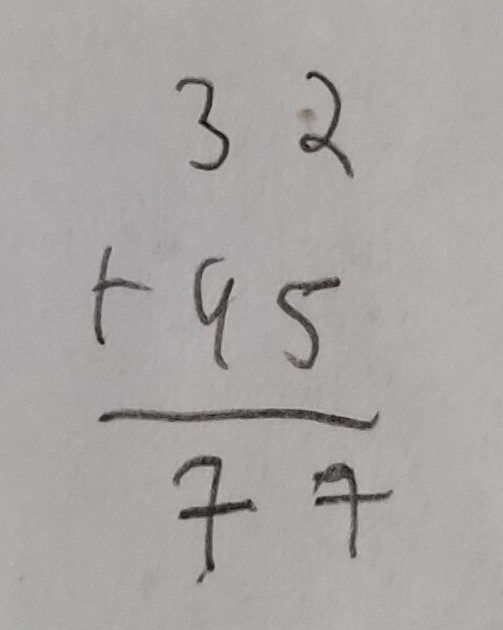 32
+45
77